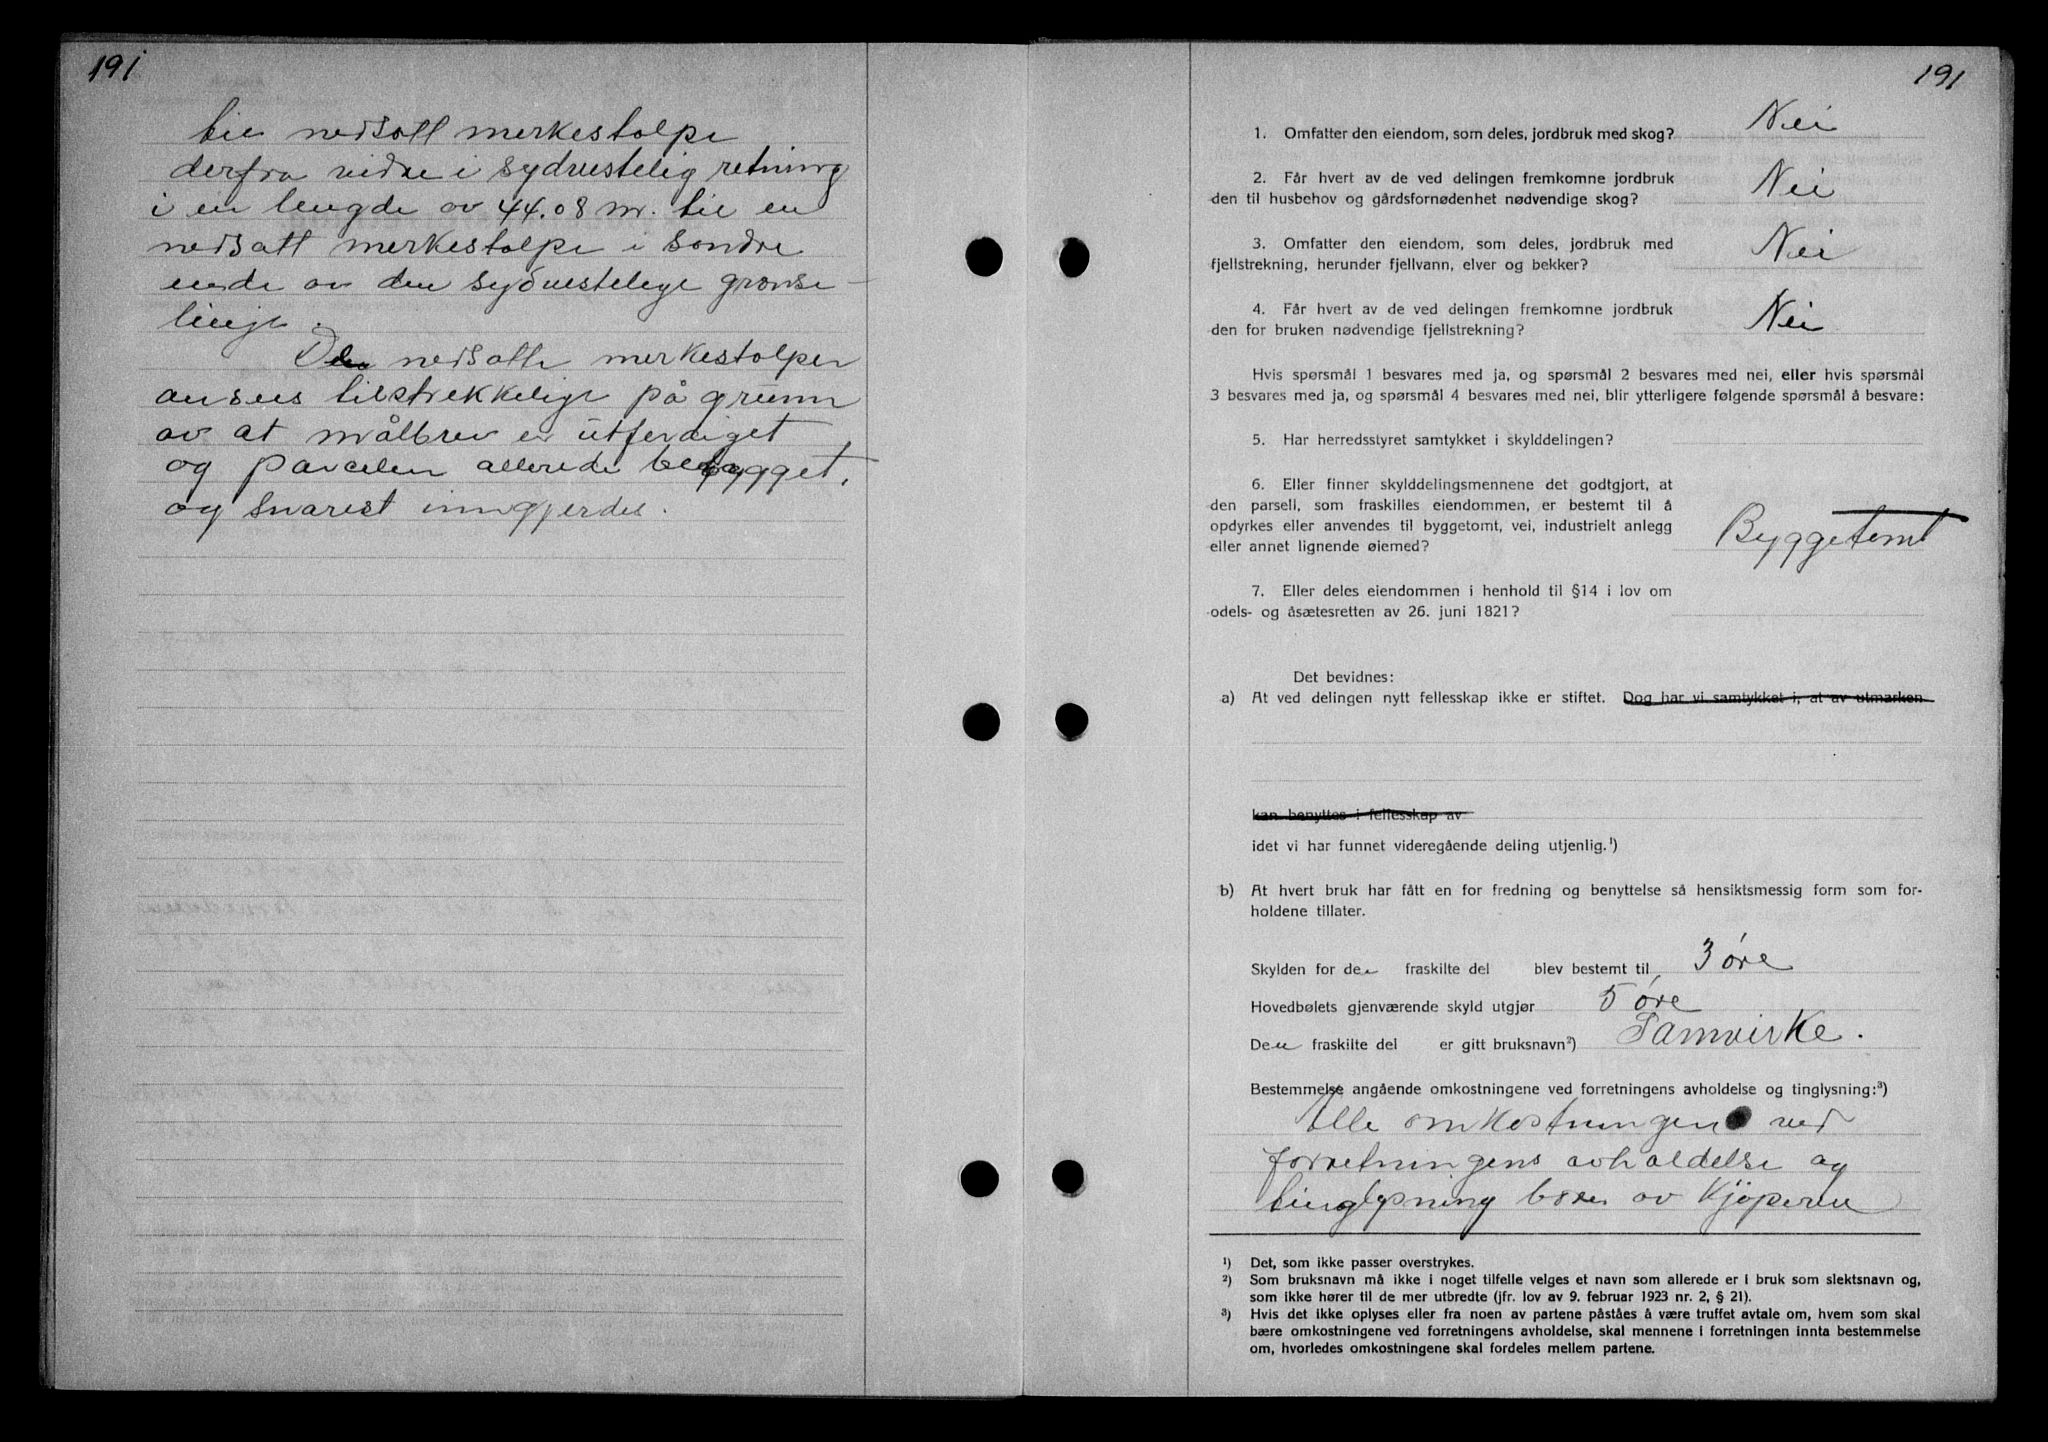 191
til nedsatt merkestolpe
derfra vidre i sydvestelig retning
i en lengde av 44.08 m. til en
nedsatt merkestolpe i søndre
ende av den sydvestelige grense-
linje.
De nedsatte merkestolper
ansees tilstrekkelige på grunn
av at målbrev er utferdiget
og parcelen allerede bebygget,
og snarest inngjerdes.
191
1. Omfatter den eiendom, som deles, jordbruk med skog? Nei
2. Får hvert av de ved delingen fremkomne jordbruk
den til husbehov og gårdsfornødenhet nødvendige skog? Nei
3. Omfatter den eiendom, som deles, jordbruk med
fjellstrekning, herunder fjellvann, elver og bekker? Nei
4. Får hvert av de ved delingen fremkomne jordbruk
den for bruken nødvendige fjellstrekning? Nei
Hvis spørsmål 1 besvares med ja, og spørsmål 2 besvares med nei, eller hvis spørsmål
3 besvares med ja, og spørsmål 4 besvares med nei, blir ytterligere følgende spørsmål å besvare:
5. Har herredsstyret samtykket i skylddelingen?
6. Eller finner skylddelingsmennene det godtgjort, at
den parsell, som fraskilles eiendommen, er bestemt til å
opdyrkes eller anvendes til byggetomt, vei, industrielt anlegg
eller annet lignende øiemed? Byggetomt
7. Eller deles eiendommen i henhold til §14 i lov om
odels- og åsætesretten av 26. juni 1821?
Det bevidnes:
a) At ved delingen nytt fellesskap ikke er stiftet. Dog har vi samtykket i, at av utmarken
kan benyttes i fellesskap av
idet vi har funnet videregående deling utjenlig.¹)
b) At hvert bruk har fått en for fredning og benyttelse så hensiktsmessig form som for-
holdene tillater.
Skylden for den fraskilte del blev bestemt til 3 øre
Hovedbølets gjenværende skyld utgjør 5 øre
Den fraskilte del er gitt bruksnavn²) Samvirke.
Bestemmelse angående omkostningene ved forretningens avholdelse og tinglysning:³)
Alle omkostningen ved
forretningens avholdelse og
tinglysning bæres av Kjøperen
¹) Det, som ikke passer overstrykes.
²) Som bruksnavn må ikke i noget tilfelle velges et navn som allerede er i bruk som slektsnavn og,
som ikke hører til de mer utbredte (jfr. lov av 9. februar 1923 nr. 2, § 21).
³) Hvis det ikke oplyses eller fra noen av partene påståes å være truffet avtale om, hvem som skal
bære omkostningene ved forretningens avholdelse, skal mennene i forretningen innta bestemmelse
om, hvorledes omkostningene skal fordeles mellem partene.